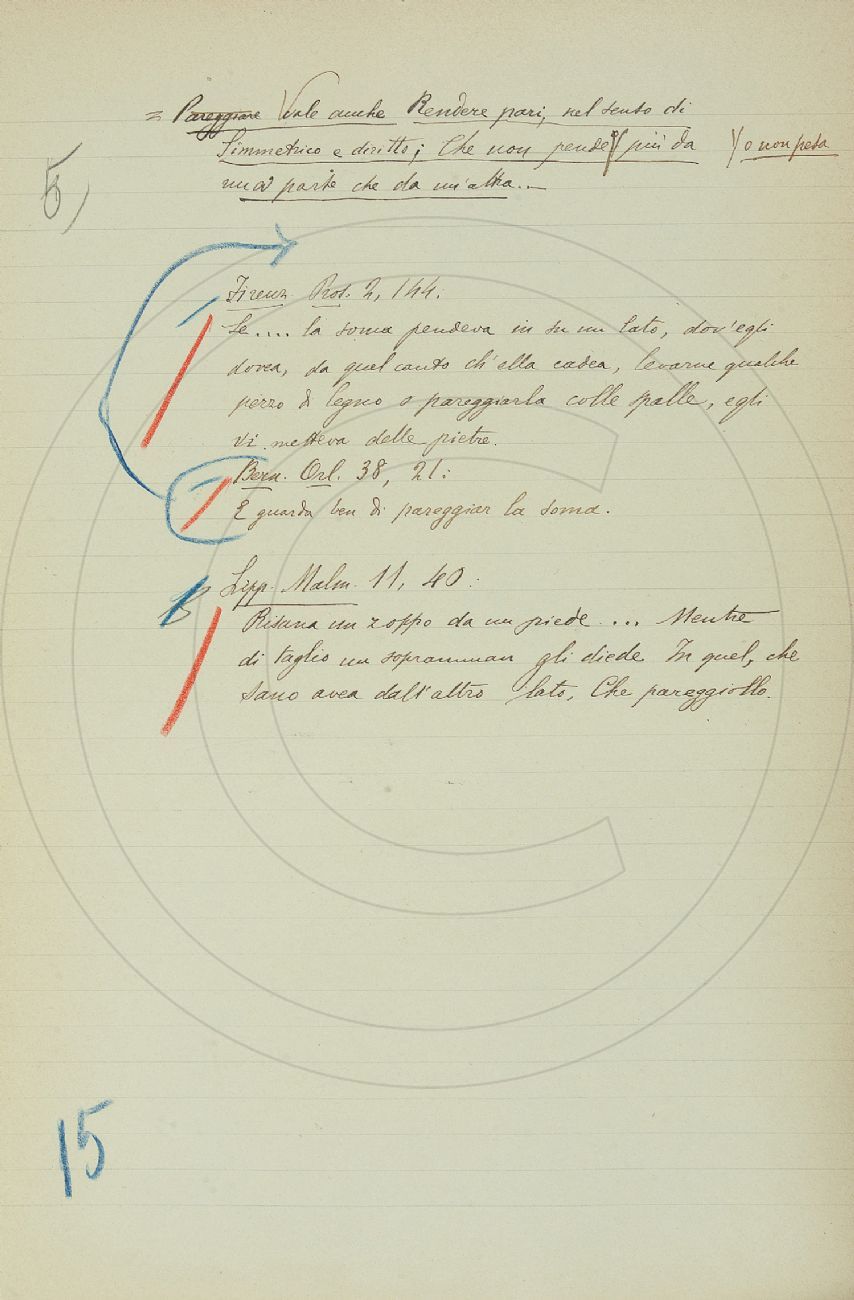 = Pareggiare Vale anche Rendere pari, nel senso di
Simmetrico e diritto; Che non pende più da o non pesa
una parte che da un'altra. —
5)
Firenz. Pros. 2, 144:
Se.... la soma pendeva in su un lato, dov'egli
dovea, da quel canto ch'ella cadea, levarne qualche
pezzo di legno o pareggiarla colle spalle, egli
vi metteva delle pietre.
Bern. Orl. 38, 21:
E guarda ben di pareggiar la soma.
Lipp. Malm. 11, 40:
Risana un zoppo da un piede.... Mentre
di taglio un sopramman gli diede In quel, che
sano avea dall'altro lato, Che pareggiollo.
15